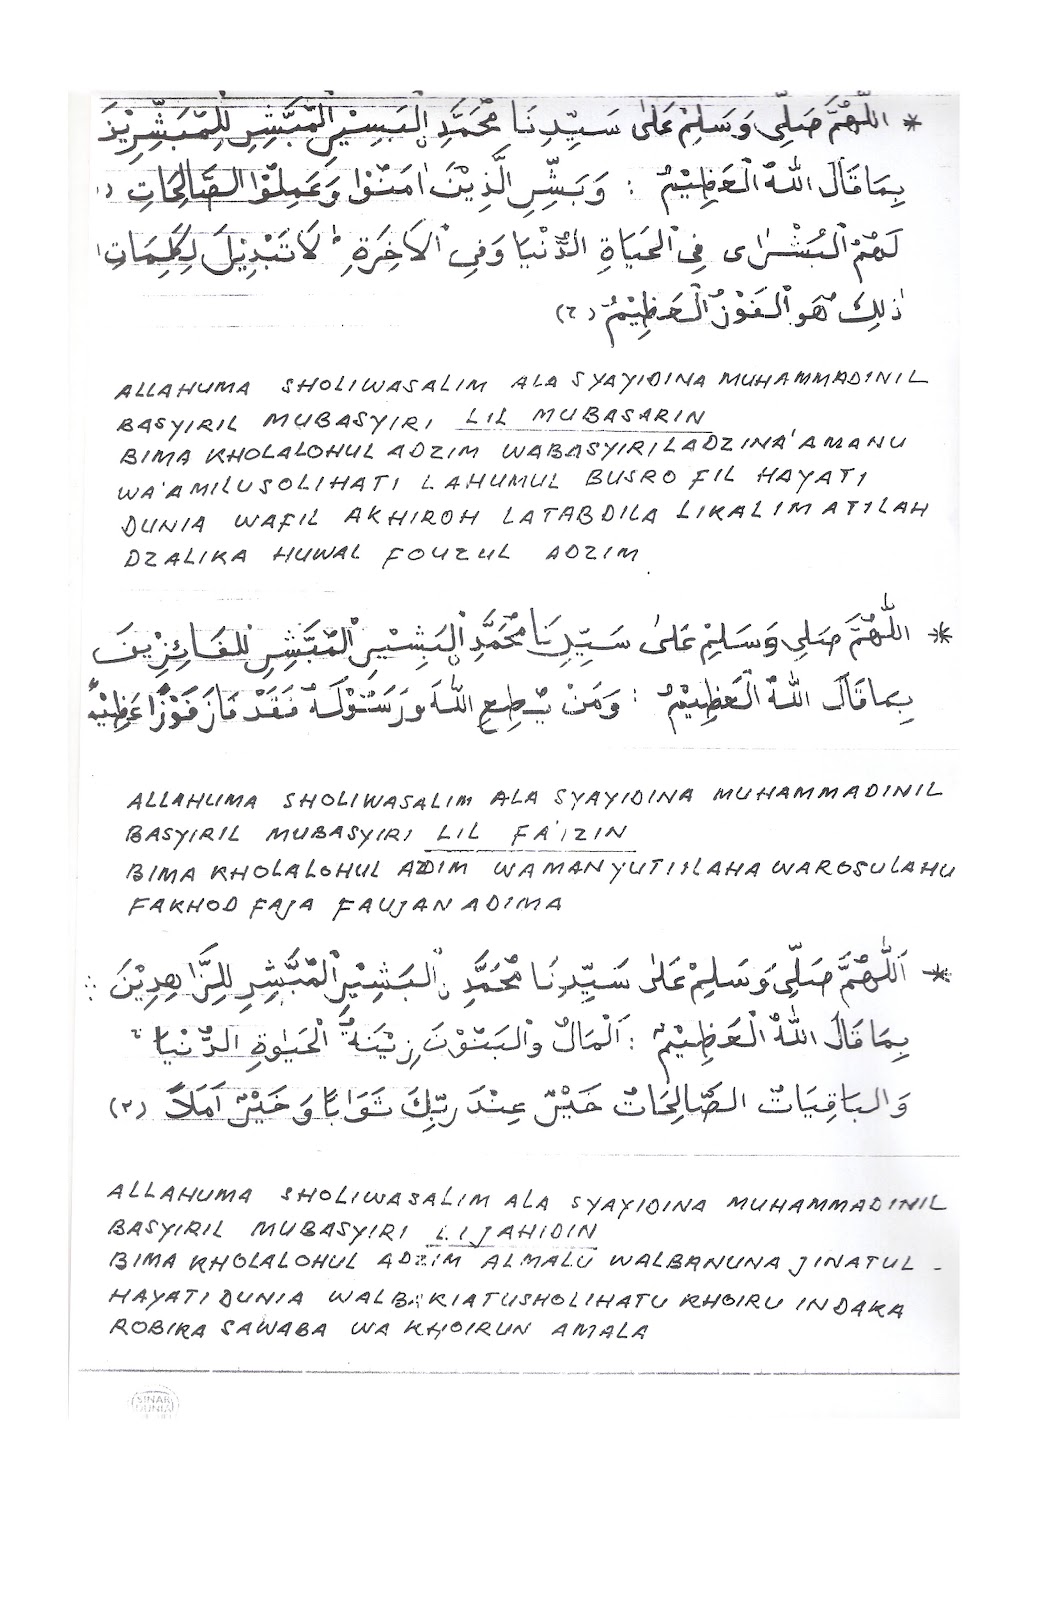 * اللّٰهُمَّ صَلِّى وَسَلِمْ عَلٰى سَيِّدِنَا مُحَمَّدِ الْبَسِيْرِ الْمُبَشِّرِ لِلْمُبَشِّرِيْنَ
بِمَا قَالَ اللهُ الْعَظِيْمُ : وَبَشِّرِ الَّذِيْنَ اٰمَنُوْا وَعَمِلُوْا الصَّالِحَاتِ
لَهُمُ الْبُشْرٰى فِى الْحَيَاةِ الدُّنْيَا وَفِى الْاٰخِرَةِ لَا تَبْدِيْلَ لِكَلِمَاتِ
ذٰلِكَ هُوَ الْفَوْزُ الْعَظِيْمُ (٢)
ALLAHUMA SHOLIWASALIM ALA SYAYIDINA MUHAMMADINIL
BASYIRIL MUBASYIRI LIL MUBASARIN
BIMA KHOLALOHUL ADZIM WABASYIRILADZINA'AMANU
WA'AMILUSOLIHATI LAHUMUL BUSRO FIL HAYATI
DUNIA WAFIL AKHIROH LATABDILA LIKALIMATILAH
DZALIKA HUWAL FOUZUL ADZIM
* اللّٰهُمَّ صَلِى وَسَلِمْ عَلٰى سَيِّدِنَا مُحَمَّدِ الْبَشِيْرِ الْمُبَشِّرِ لِلْفَائِزِيْنَ
بِمَا قَالَ اللهُ الْعَظِيْمُ : وَمَنْ يُطِعِ اللهَ وَرَسُوْلَهُ فَقَدْ فَازَ فَوْزًا عَظِيْمًا
ALLAHUMA SHOLIWASALIM ALA SYAYIDINA MUHAMMADINIL
BASYIRIL MUBASYIRI LIL FA'IZIN
BIMA KHOLALOHUL ADZIM WAMANYUTI'ILAHA WAROSULAHU
FAKHOD FAJA FAUJAN ADIMA
* اَللّٰهُمَّ صَلِّى وَسَلِمْ عَلٰى سَيِّدِنَا مُحَمَّدِ الْبَشِيْرِ الْمُبَشِّرِ لِلزَّاهِدِيْنَ
بِمَا قَالَ اللهُ الْعَظِيْمُ : اَلْمَالُ وَالْبَنُوْنَ زِيْنَةُ الْحَيٰوةِ الدُّنْيَا
وَالبَاقِيَاتُ الصَّالِحَاتُ خَيْرٌ عِنْدَ رَبِّكَ ثَوَابًا وَخَيْرٌ اَمَلًا (٣)
ALLAHUMA SHOLIWASALIM ALA SYAYIDINA MUHAMMADINIL
BASYIRIL MUBASYIRI LIJAHIDIN
BIMA KHOLALOHUL ADZIM ALMALU WALBANUNA JINATUL -
HAYATI DUNIA WALBAKIATUSHOLIHATU KHOIRU INDAKA
ROBIKA SAWABA WA KHOIRUN AMALA
SINAR
DUNIA